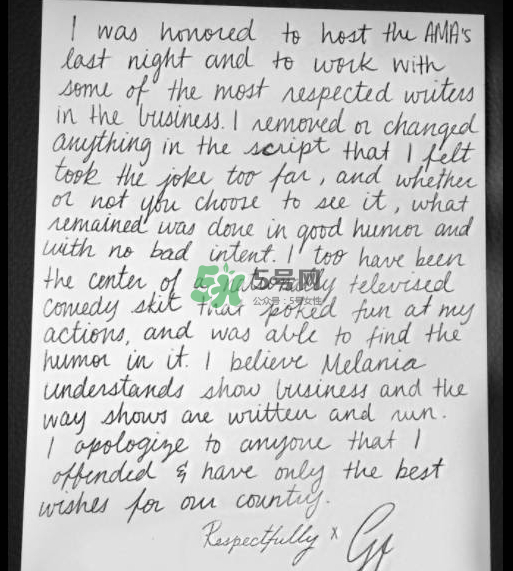 I was honored to host the AMA's
last night and to work with
some of the most respected writers
in the business. I removed or changed
anything in the script that I felt
took the joke too far, and whether
or not you choose to see it, what
remained was done in good humor and
with no bad intent. I too have been
the center of a televised
5号网
公众号:5号女性
comedy skit that poked fun at my
actions, and was able to find the
humor in it. I believe Melania
understands show business and the
way shows are written and run.
I apologize to anyone that I
offended & have only the best
wishes for our country.
Respectfully x